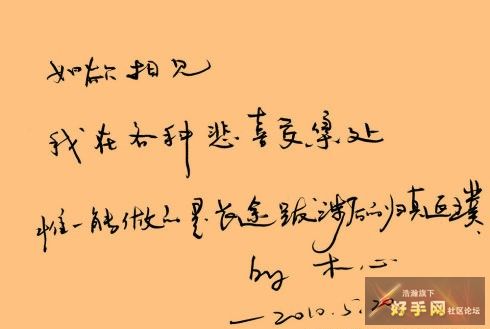 如欲相见
我在各种悲喜交集处
惟一能做的是长途跋涉后的归真返璞
by 木心
—2010.5.20
浩瀚旗下
好手网社区论坛